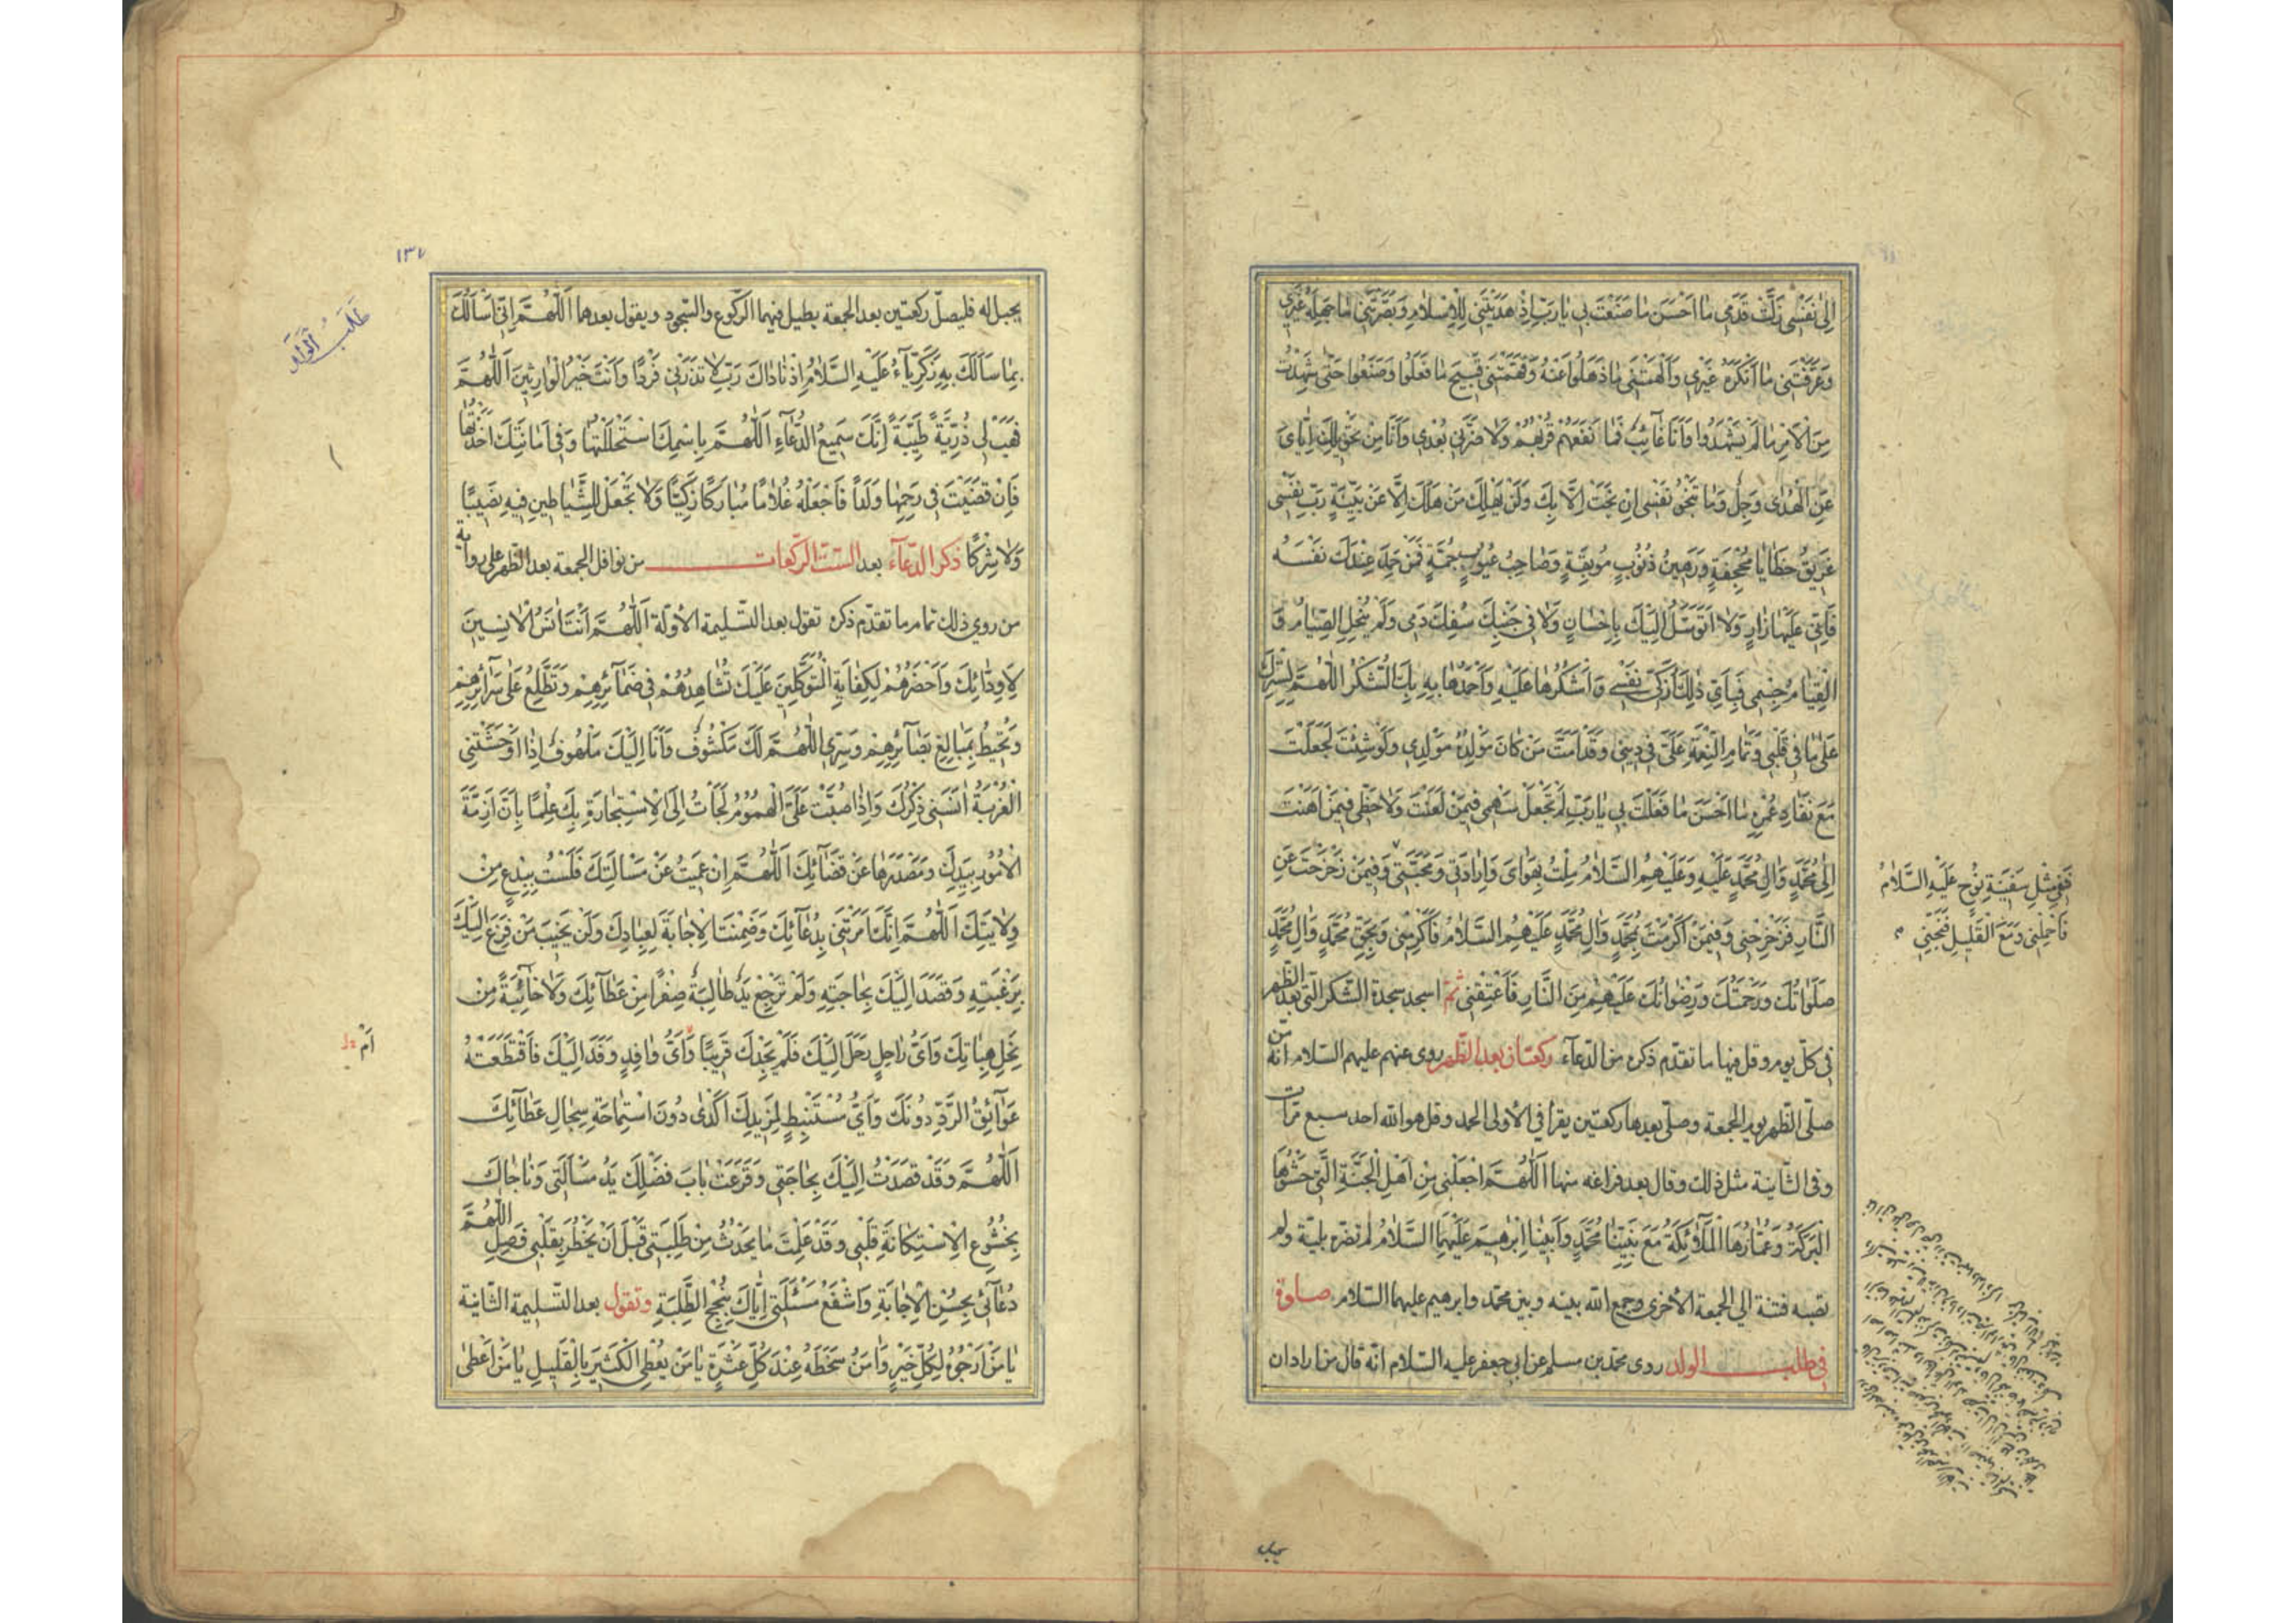 اِلىٰ نَفْسى زَلَّتْ قَدَمى ما اَحْسَنَ ما صَنَعْتَ بى يا رَبِّ اِذْ هَدَيْتَنى لِلْاِسْلامِ وَ بَصَّرْتَنى ما جَهِلَهُ غَيْرى
وَعَرَّفْتَنى ما اَنْكَرَهُ غَيْرى وَاَلْهَمْتَنى ما ذَهَلُوا عَنْهُ وَفَهَّمْتَنى قَبيحَ ما فَعَلُوا وَصَنَعُوا حَتّىٰ شَهِدْتُ
مِنَ الْاَمْرِ ما لَمْ يَشْهَدُوا وَاَنَا غائِبٌ فَما نَفَعَهُمْ قُرْبُهُمْ وَلا ضَرَّنى بُعْدى وَاَنَا مِنْ تَحْويلِكَ اِيّاىَ
عَنِ الْهُدىٰ وَجِلٌ وَما تَنْجُو نَفْسى اِنْ نَجَتْ اِلّا بِكَ وَلَنْ يَهْلِكَ مَنْ هَلَكَ اِلّا عَنْ بَيِّنَةٍ رَبِّ نَفْسى
غَريقُ خَطايا مُجْحِفَةٍ وَرَهينُ ذُنُوبٍ مُوبِقَةٍ وَصاحِبُ عُيُوبٍ جُمَّةٍ فَمَنْ حَمِدَ عِنْدَكَ نَفْسَهُ
فَاِنّى عَلَيْها زارٍ وَلا اَتَوَسَّلُ اِلَيْكَ بِاِحْسانٍ وَلا فى جَنْبِكَ سُفِكَ دَمى وَلَمْ يُنْحِلِ الصِّيامُ وَ
الْقِيامُ جِسْمى فَبِاَىِّ ذٰلِكَ اُزَكّى نَفْسى وَاَشْكُرُها عَلَيْهِ وَاَحْمَدُها بِهِ بَلِ الشُّكْرُ لَكَ اللّٰهُمَّ لِسَتْرِكَ
عَلىٰ ما فى قَلْبى وَتَمامِ النِّعْمَةِ عَلَىَّ فى دينى وَقَدْ اَمَتَّ مَنْ كانَ مَوْلِدُهُ مَوْلِدى وَلَوْ شِئْتَ لَجَعَلْتَ
مَعَ نَفادِ عُمْرِهِ ما اَحْسَنَ ما فَعَلْتَ بى يا رَبِّ لَمْ تَجْعَلْ سَهْمى فيمَنْ لَعَنْتَ وَلا حَظّى فيمَنْ اَهَنْتَ
اِلىٰ مُحَمَّدٍ وَالِ مُحَمَّدٍ عَلَيْهِ وَعَلَيْهِمُ السَّلامُ مِلْتُ بِهَواىَ وَاِرادَتى وَمَحَبَّتى وَفيمَنْ زَحْزَحْتَ عَنِ
النّارِ فَزَحْزِحْنى وَفيمَنْ اَكْرَمْتَ بِمُحَمَّدٍ وَالِ مُحَمَّدٍ عَلَيْهِمُ السَّلامُ فَاَكْرِمْنى وَبِحَقِّ مُحَمَّدٍ وَالِ مُحَمَّدٍ
صَلَواتُكَ وَرَحْمَتُكَ وَرِضْوانُكَ عَلَيْهِمْ مِنَ النّارِ فَاَعْتِقْنى ثمّ اسجد سجدة الشّكر الّتى بعد الظهر
فى كلّ يوم وقل فيها ما تقدّم ذكره من الدّعآء ركعتان بعد الظّهر روى عنهم عليهم السّلام انّه من
صلّى الظّهر يوم الجمعة وصلّى بعدها ركعتين يقرأ فى الأولى الحمد وقل هو الله احد سبع مرّات
وفى الثّانية مثل ذلك وقال بعد فراغه منها اَللّٰهُمَّ اجْعَلْنى مِنْ اَهْلِ الْجَنَّةِ الَّتى حَشْوُهَا
الْبَرَكَةُ وَعُمّارُهَا الْمَلآئِكَةُ مَعَ نَبِيِّنا مُحَمَّدٍ وَاَبينا اِبْرٰهيمَ عَلَيْهِمَا السَّلامُ لم تضرّه بليّة ولم
تصبه فتنة الى الجمعة الأخرى وجمع الله بينه وبين محمّد وابرهيم عليهما السّلام صلوة
فى طلب الولد روى محمّد بن مسلم عن ابى جعفر عليه السّلام انّه قال من اراد ان
فَفى مِثْلِ سَفينَةِ نُوحٍ عَلَيْهِ السَّلامُ
فَاحْمِلْنى وَمَعَ الْقَليلِ فَنَجِّنى
يحبل
١٣٧
طَلَبُ الْوَلَدِ
يحبل له فليصلّ ركعتين بعد الجمعة يطيل فيهما الرّكوع والسّجود ويقول بعدهما اَللّٰهُمَّ اِنّى اَسْاَلُكَ
بِما سَاَلَكَ بِهِ زَكَرِيّآءُ عَلَيْهِ السَّلامُ اِذْ ناداكَ رَبِّ لا تَذَرْنى فَرْدًا وَاَنْتَ خَيْرُ الْوارِثينَ اَللّٰهُمَّ
فَهَبْ لى ذُرِّيَّةً طَيِّبَةً اِنَّكَ سَميعُ الدُّعآءِ اَللّٰهُمَّ بِاسْمِكَ اسْتَحْلَلْتُها وَفى اَمانَتِكَ اَخَذْتُها
فَاِنْ قَضَيْتَ فى رَحِمِها وَلَدًا فَاجْعَلْهُ غُلامًا مُبارَكًا زَكِيًّا وَلا تَجْعَلْ لِلشَّياطينِ فيهِ نَصيبًا
وَلا شِرْكًا ذكر الدّعآء بعد الستّ الرّكعات من نوافل الجمعة بعد الظّهر على رواية
من روى ذلك تمام ما تقدّم ذكره تقول بعد التّسليمة الأولة اَللّٰهُمَّ اَنْتَ اٰنَسُ الْاٰنِسينَ
لِاَوِدّائِكَ وَاَحْضَرُهُمْ لِكِفايَةِ الْمُتَوَكِّلينَ عَلَيْكَ تُشاهِدُهُمْ فى ضَمآئِرِهِمْ وَتَطَّلِعُ عَلىٰ سَرآئِرِهِمْ
وَتُحيطُ بِمَبالِغِ بَصآئِرِهِمْ وَسِرّى اللّٰهُمَّ لَكَ مَكْشُوفٌ وَاَنَا اِلَيْكَ مَلْهُوفٌ اِذا اَوْحَشَتْنى
الْغُرْبَةُ اٰنَسَنى ذِكْرُكَ وَاِذا صُبَّتْ عَلَىَّ الْهُمُومُ لَجَأْتُ اِلَى الْاِسْتِجارَةِ بِكَ عِلْمًا بِاَنَّ اَزِمَّةَ
الْاُمُورِ بِيَدِكَ وَمَصْدَرَها عَنْ قَضآئِكَ اَللّٰهُمَّ اِنْ عَمِيتُ عَنْ مَسْاَلَتِكَ فَلَسْتُ بِبِدْعٍ مِنْ
وِلايَتِكَ اَللّٰهُمَّ اِنَّكَ اَمَرْتَنى بِدُعآئِكَ وَضَمِنْتَ الْاِجابَةَ لِعِبادِكَ وَلَنْ يَخيبَ مَنْ فَزِعَ اِلَيْكَ
بِرَغْبَتِهِ وَقَصَدَ اِلَيْكَ بِحاجَتِهِ وَلَمْ تَرْجِعْ يَدٌ طالِبَةٌ صِفْرًا مِنْ عَطآئِكَ وَلا خآئِبَةً مِنْ
نِحَلِ هِباتِكَ وَاَىُّ راحِلٍ رَحَلَ اِلَيْكَ فَلَمْ يَجِدْكَ قَريبًا وَاَىُّ وافِدٍ وَفَدَ اِلَيْكَ فَاقْتَطَعَتْهُ
عَوآئِقُ الرَّدِّ دُونَكَ وَاَىُّ مُسْتَنْبِطٍ لِمَزيدِكَ اَكْدىٰ دُونَ اسْتِماحَةِ سِجالِ عَطآئِكَ
اَللّٰهُمَّ وَقَدْ قَصَدْتُ اِلَيْكَ بِحاجَتى وَقَرَعَتْ بابَ فَضْلِكَ يَدُ مَسْاَلَتى وَناجاكَ
بِخُشُوعِ الْاِسْتِكانَةِ قَلْبى وَقَدْ عَلِمْتَ ما يَحْدُثُ مِنْ طَلِبَتى قَبْلَ اَنْ يَخْطُرَ بِقَلْبى فَصِلِ اللّٰهُمَّ
دُعآئى بِحُسْنِ الْاِجابَةِ وَاشْفَعْ مَسْئَلَتى اِيّاكَ بِنُجْحِ الطَّلِبَةِ وتقول بعد التّسليمة الثّانية
يا مَنْ اَرْجُوهُ لِكُلِّ خَيْرٍ وَاٰمَنُ سَخَطَهُ عِنْدَ كُلِّ عَثْرَةٍ يا مَنْ يُعْطِى الْكَثيرَ بِالْقَليلِ يا مَنْ اَعْطىٰ
اَمْ